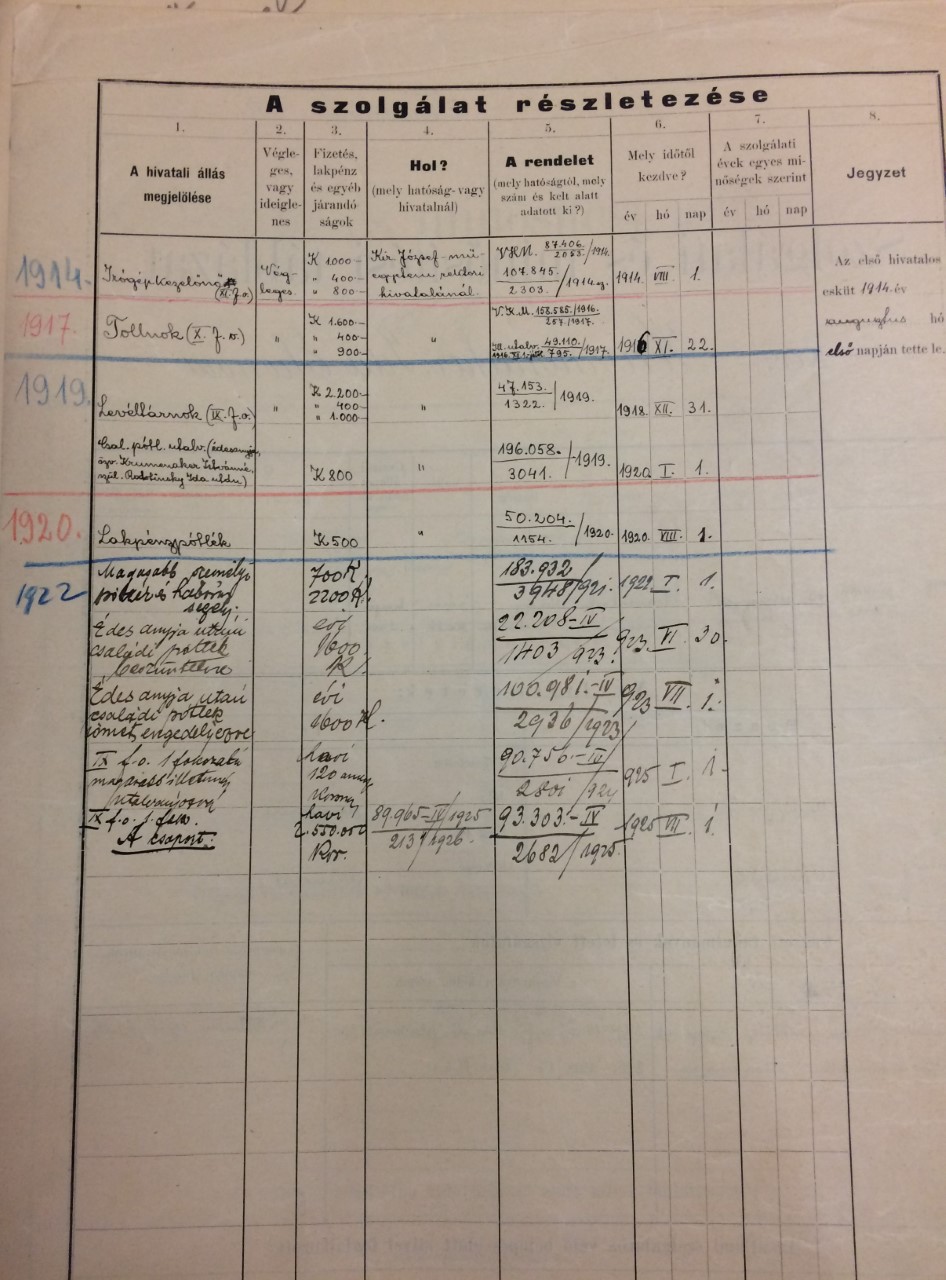 A szolgálat részletezése
1.
2.
3.
4.
5.
6.
7.
8.
A hivatali állás
megjelölése
Végle-
ges,
vagy
ideigle-
nes
Fizetés,
lakpénz
és egyéb
járandó
ságok
Hol?
(mely hatóság- vagy
hivatalnál)
A rendelet
(mely hatóságtól, mely
szám és kelt alatt
adatott ki?)
Mely időtől
kezdve?
év hó nap
A szolgálati
évek egyes mi-
nőségek szerint
év hó nap
Jegyzet
1914.
Írógépkezelőnő
(XI. f. o.)
Vég-
leges.
K 1000-
" 400-
" 800-
Kir. József-mű-
egyetem rektori
hivatalánál.
V.K.M. 87.406./2055./1914.
107.845./2303./1914.
1914. VIII. 1.
Az első hivatalos
esküt 1914. év
augusztus hó
első napján tette le.
1917.
Tollnok (X. f. o.)
"
K 1.600-
" 400-
" 900-
"
V.K.M. 158.585./1916.
257./1917.
49.110./795./1917.
1916 XI. 22.
1919.
Levéltárnok (IX. f. o.)
"
K 2.200-
" 400-
" 1.000-
"
47.153./1322./1919.
1918. XII. 31.
Csal. pótl. utalv. (édesanyja,
özv. Krumenaker Istvánné,
szül. Ida után)
K 800
"
196.058./3041./1919.
1920. I. 1.
1920.
Lakpénzpótlék
K 500
"
50.204./1154./1920.
1920. VIII. 1.
1922
Magasabb személyi
pótlék és háborús
segély.
700 K.
2200 K.
183.932/3948/921.
1922. I. 1.
Édes anyja utáni
családi pótlék
beszüntetve
évi
1600
K.
22.208-IV/1403/923.
923. VI. 30.
Édes anyja után
családi pótlék
ismét engedélyezve
évi
1600 K.
100.981.-IV/2936/1923
923 VII. 1.
IX f. o. 1 fokozata
magasabb illetmény
utalványozva
havi
120 arany
korona
90.756-IV
925 I. 1.
IX f. o. 1. fok.
A csoport.
havi
2.550.000
Kor.
89.965-IV/1925
213/1926.
93.303.-IV
2682/1925.
1925 VII. 1.